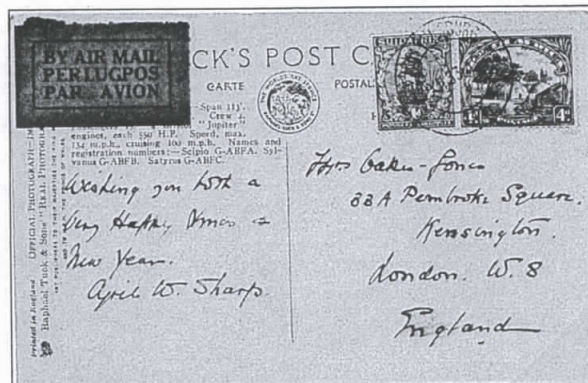 BY AIR MAIL
PER LUGPOS
PAR AVION
CK'S POST C
CARTE
POSTAL
Span 113'.
Crew 4,
"Jupiter"
engines, each 550 H.P. Speed, max.
134 m.p.h., cruising 100 m.p.h. Names and
registration numbers:—Scipio G-ABFA. Syl-
vanus G-ABFB. Satyrus G-ABFC.
Printed in England
OFFICIAL PHOTOGRAPH
Raphael Tuck & Sons' "REAL PHOTOGRAPH
4d
Wishing you both a
Very Happy Xmas &
New Year.
April W. Sharp.
Mrs Oakes-Jones
33A Pembroke Square.
Kensington.
London. W. 8
England